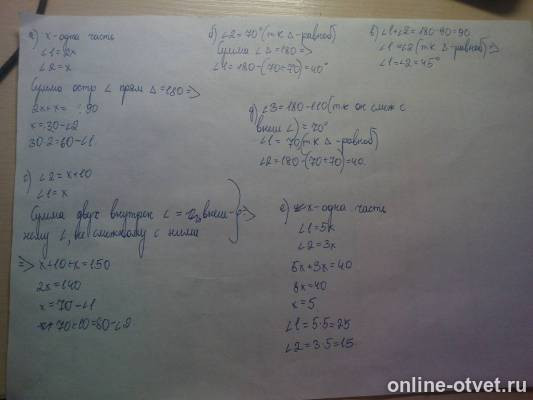 а) x-одна часть
∠1=2x
∠2=x
Сумма остр ∠ прям Δ=180 =>
2x+x= 90
x=30-∠2
30·2=60-∠1.
б) ∠2=70° (тк Δ-равноб)
Сумма ∠ Δ=180 =>
∠1=180-(70+70)=40°
в) ∠1+∠2=180-90=90
∠1=∠2 (тк Δ-равноб) =>
∠1=∠2=45°
д) ∠3=180-110 (тк он смеж с
внеш ∠)=70°
∠1=70 (тк Δ-равноб)
∠2=180-(70+70)=40.
с) ∠2=x+10
∠1=x
Сумма двух внутрен ∠ = внеш-
нему ∠, не смежному с ними =>
=> x+10+x=150
2x=140
x=70-∠1
70+10=80-∠2
е) x-одна часть
∠1=5x
∠2=3x
5x+3x=40
8x=40
x=5
∠1=5·5=25
∠2=3·5=15.
online-otvet.ru